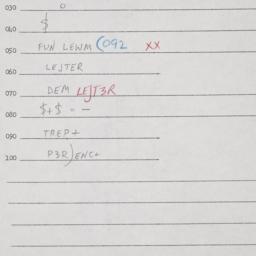 030 0
040 $
050 FUN LEWM (092 XX
060 LEJTER
070 DEM LEJT3R
080 $+$ = —
090 TREP+
100 P3R)ENC+